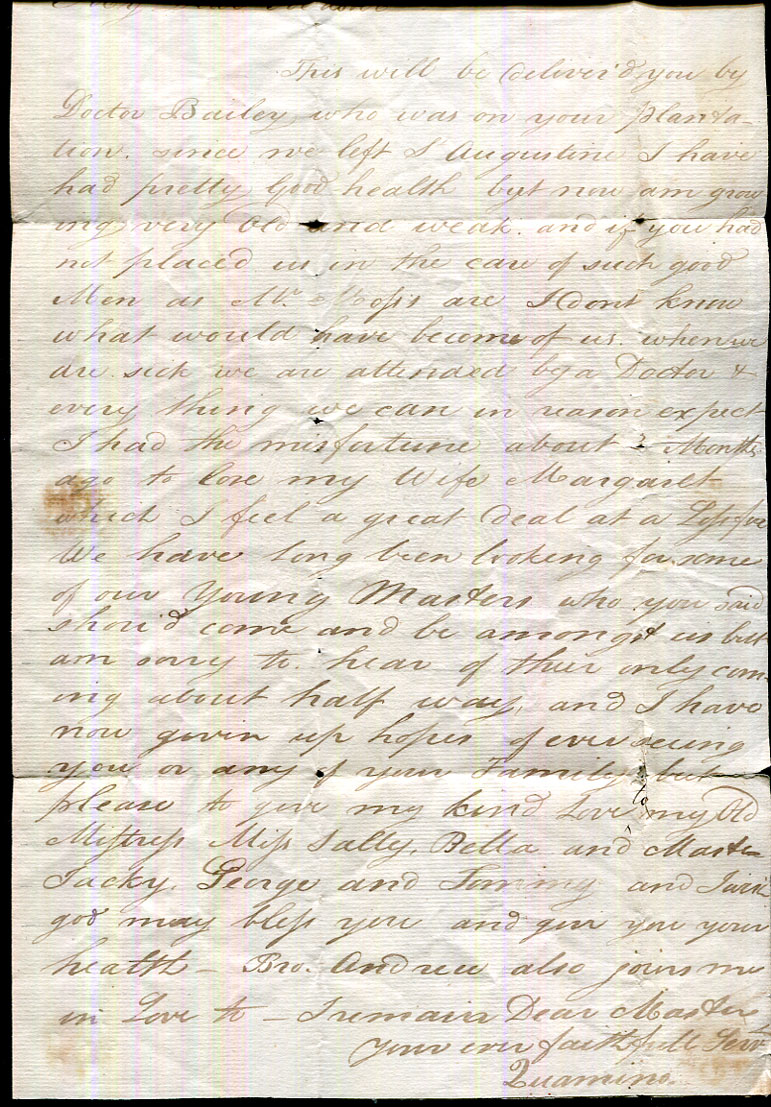 This will be deliver'd you by
Doctor Bailey who was on your planta-
tion. since we left St Augustine I have
had pretty Good health but now am grow
ing very Old and weak. and if you had
not placed us in the care of such good
Men as Mr. are I dont know
what would have become of us. when we
are sick we are attended by a Doctor &
every thing we can in reason expect
I had the misfortune about 2 Months
ago to lose my Wife Margaret
which I feel a great deal at a Loss for
We have long been looking for some
of our Young Masters who you said
shou'd come and be amongst us but
am sorry to hear of their only com-
ing about half way, and I have
now given up hopes of ever seeing
you or any of your Family but
please to give my kind Love to my Old
Mistress Miss Sally, Bella and Master
Jacky, George and Tommy and I wish
god may bless you and give you your
health – Bro. Andrew also joins me
in Love to – I remain Dear Master
your ever faithfull Servt
Quamino.